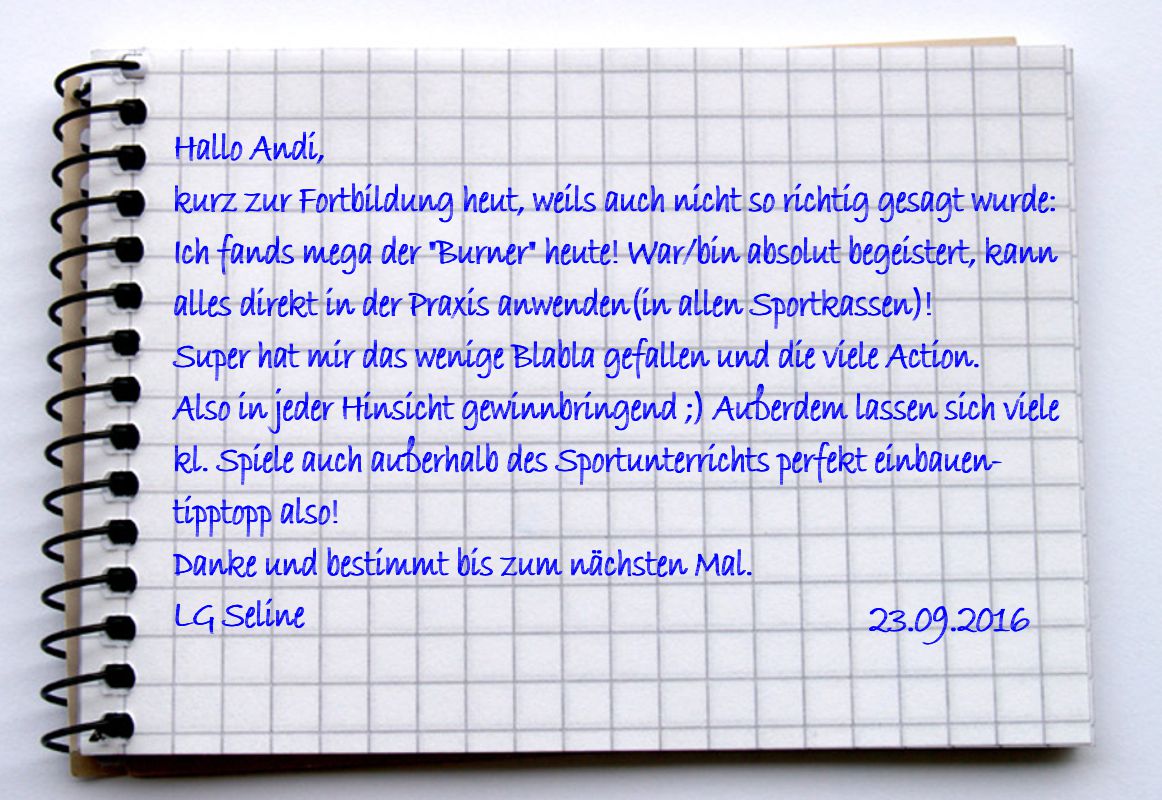 Hallo Andi,
kurz zur Fortbildung heut, weils auch nicht so richtig gesagt wurde:
Ich fands mega der "Burner" heute! War/bin absolut begeistert, kann
alles direkt in der Praxis anwenden(in allen Sportkassen)!
Super hat mir das wenige Blabla gefallen und die viele Action.
Also in jeder Hinsicht gewinnbringend ;) Außerdem lassen sich viele
kl. Spiele auch außerhalb des Sportunterrichts perfekt einbauen-
tipptopp also!
Danke und bestimmt bis zum nächsten Mal.
LG Seline 23.09.2016